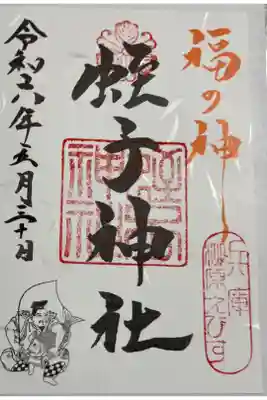 福の神
兵庫
柳原えびす
蛭子神社
令和六年五月三十日